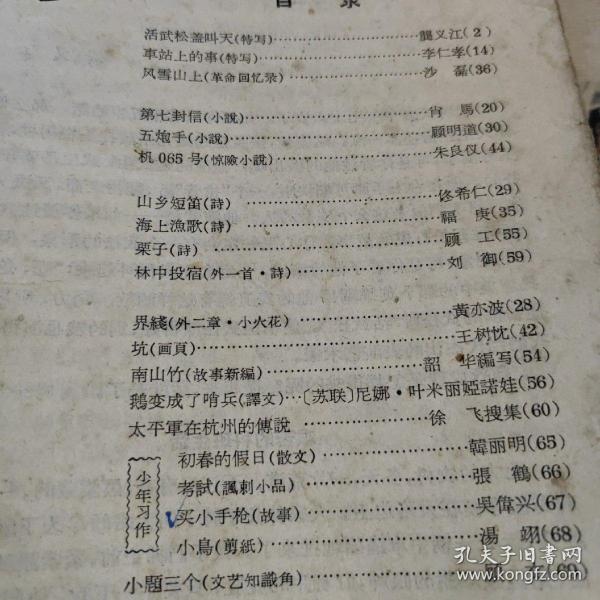 目录
活武松盖叫天(特写)……龔义江(2)
車站上的事(特写)……李仁孝(14)
风雪山上(革命回忆录)……沙磊(36)
第七封信(小說)……肖馬(20)
五炮手(小說)……顾明道(30)
机065号(惊險小說)……朱良仪(44)
山乡短笛(詩)……佟希仁(29)
海上漁歌(詩)……福庚(35)
栗子(詩)……顾工(55)
林中投宿(外一首·詩)……刘御(59)
界綫(外二章·小火花)……黄亦波(28)
坑(画頁)……王树忱(42)
南山竹(故事新編)……韶华編写(54)
鹅变成了哨兵(譯文)…〔苏联〕尼娜·叶米丽婭諾娃(56)
太平軍在杭州的傳說……徐飞搜集(60)
少年习作
初春的假日(散文)……韓丽明(65)
考試(諷刺小品)……張鶴(66)
买小手枪(故事)……吳偉兴(67)
小鳥(剪紙)……湯翊(68)
小題三个(文艺知識角)……(69)
孔夫子旧书网
www.kongfz.com